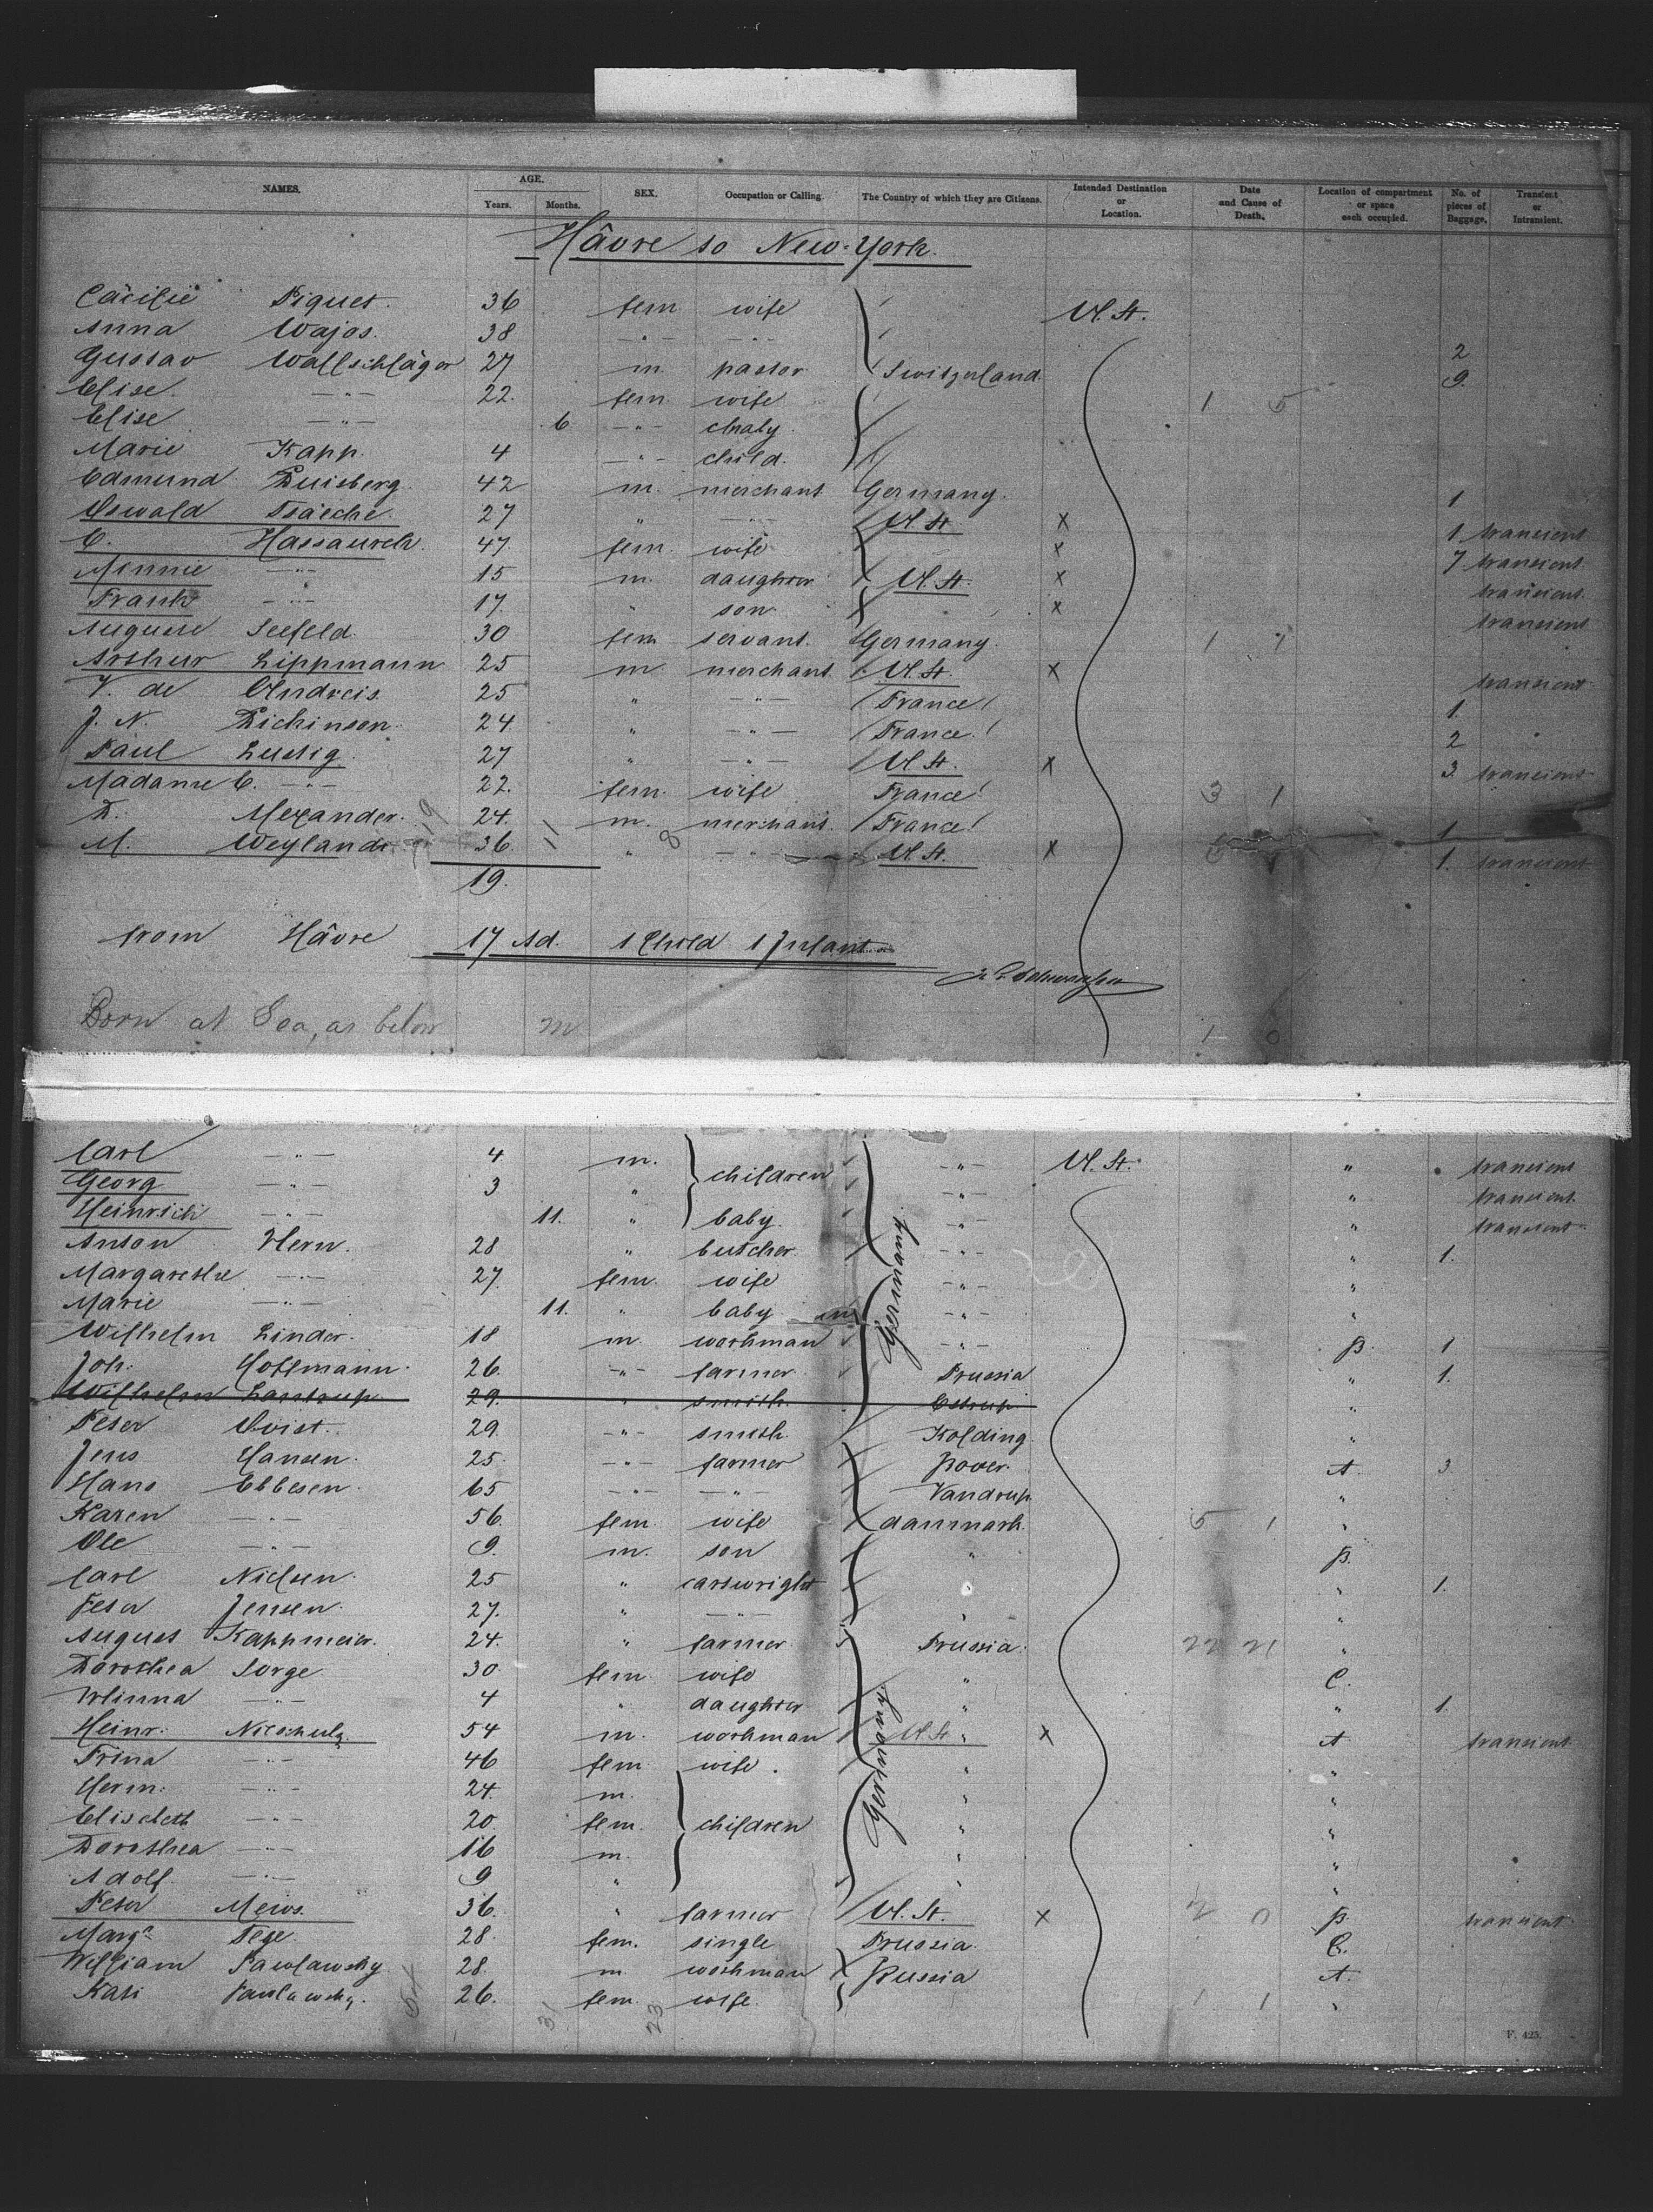 NAMES. AGE. Years. Months. SEX. Occupation or Calling. The Country of which they are Citizens. Intended Destination or Location. Date and Cause of Death. Location of compartment or space each occupied. No. of pieces of Baggage. Transient or Intransient.
Hâvre to New-York.
Cäcilie Piquet. 36 fem wife U. St.
Anna Wajos. 38 -"- -"-
Gustav Wallschläger 27 m pastor Switzerland. 2
Elise -"- 22. fem. wife 9. 1 5
Elise -"- 6 -"-
Marie Kapp. 4 -"- child.
Edmund Duisberg. 42 m. merchant Germany. 1
Oswald 27 " -"- U. St. X 1 transient
C. Hassaurek. 47. fem. wife X 7 transient
Minnie -"- 15 m. daughter U. St. X transient
Frank -"- 17. " son X transient
Auguste Seefeld. 30 fem servant. Germany. 1 1
Arthur Lippmann 25 m merchant. U. St. X transient
V. de Andreis. 25 " -"- France 1.
J. N. Dickinson. 24. " -"- France. 2
Paul Lustig. 27 " -"- U. St. X 3. transient
Madame C. -"- 22. fem. wife France 3 1
D. Alexander. 24. m. merchant. France 1
M. Weylande 36 " -"- U. St. X 1. transient
19.
from Hâvre 17 Ad. 1 Child 1 Infant
Born at Sea, as below m 1 0
Carl -"- 4. m. children -"- U. St. " transient
Georg -"- 3 " -"- " transient.
Heinrich -"- 11. " baby. -"- " transient
Anton Hern. 28 " butcher. -"- " 1.
Margarethe -"- 27. fem. wife Germany -"- "
Marie -"- 11. " baby -"- "
Wilhelm Linder. 18 m. workman -"- B. 1
Joh. Hoffmann. 26. -"- farmer. Prussia " 1.
Wilhelm 29. " smith. "
Peter Qvist. 29. -"- smith. Kolding. "
Jens Hansen. 25. -"- farmer A. 3
Hans Ebbesen. 65 -"- -"- Vandrup. "
Karen -"- 56. fem. wife danmark. 5 1 "
Ole -"- 9. m. son " B.
Carl Nielsen. 25 " cartwright " " 1.
Peter Jensen. 27. " -"- " "
August Kappmeier. 24. " farmer Prussia. 22 21 "
Dorothea Sorge 30. fem. wife " C.
Minna -"- 4 " daughter " " 1.
Heinr. 54 m. workman U. St. " X A transient
Trina -"- 46 fem. wife. Germany. " "
Herm. -"- 24. m. " "
Elisabeth -"- 20. fem. children " "
Dorothea -"- 16 m. " "
Adolf -"- 9 " " "
Peter Mews. 36. " farmer U. St. X 2 0 B. transient
Marg. Tege. 28. fem. single Prussia. C.
William Pawlawsky. 28. m workman Russia A.
Kati Pawlawsky. 26. fem. wife. 1 1 "
31 23
F. 425.